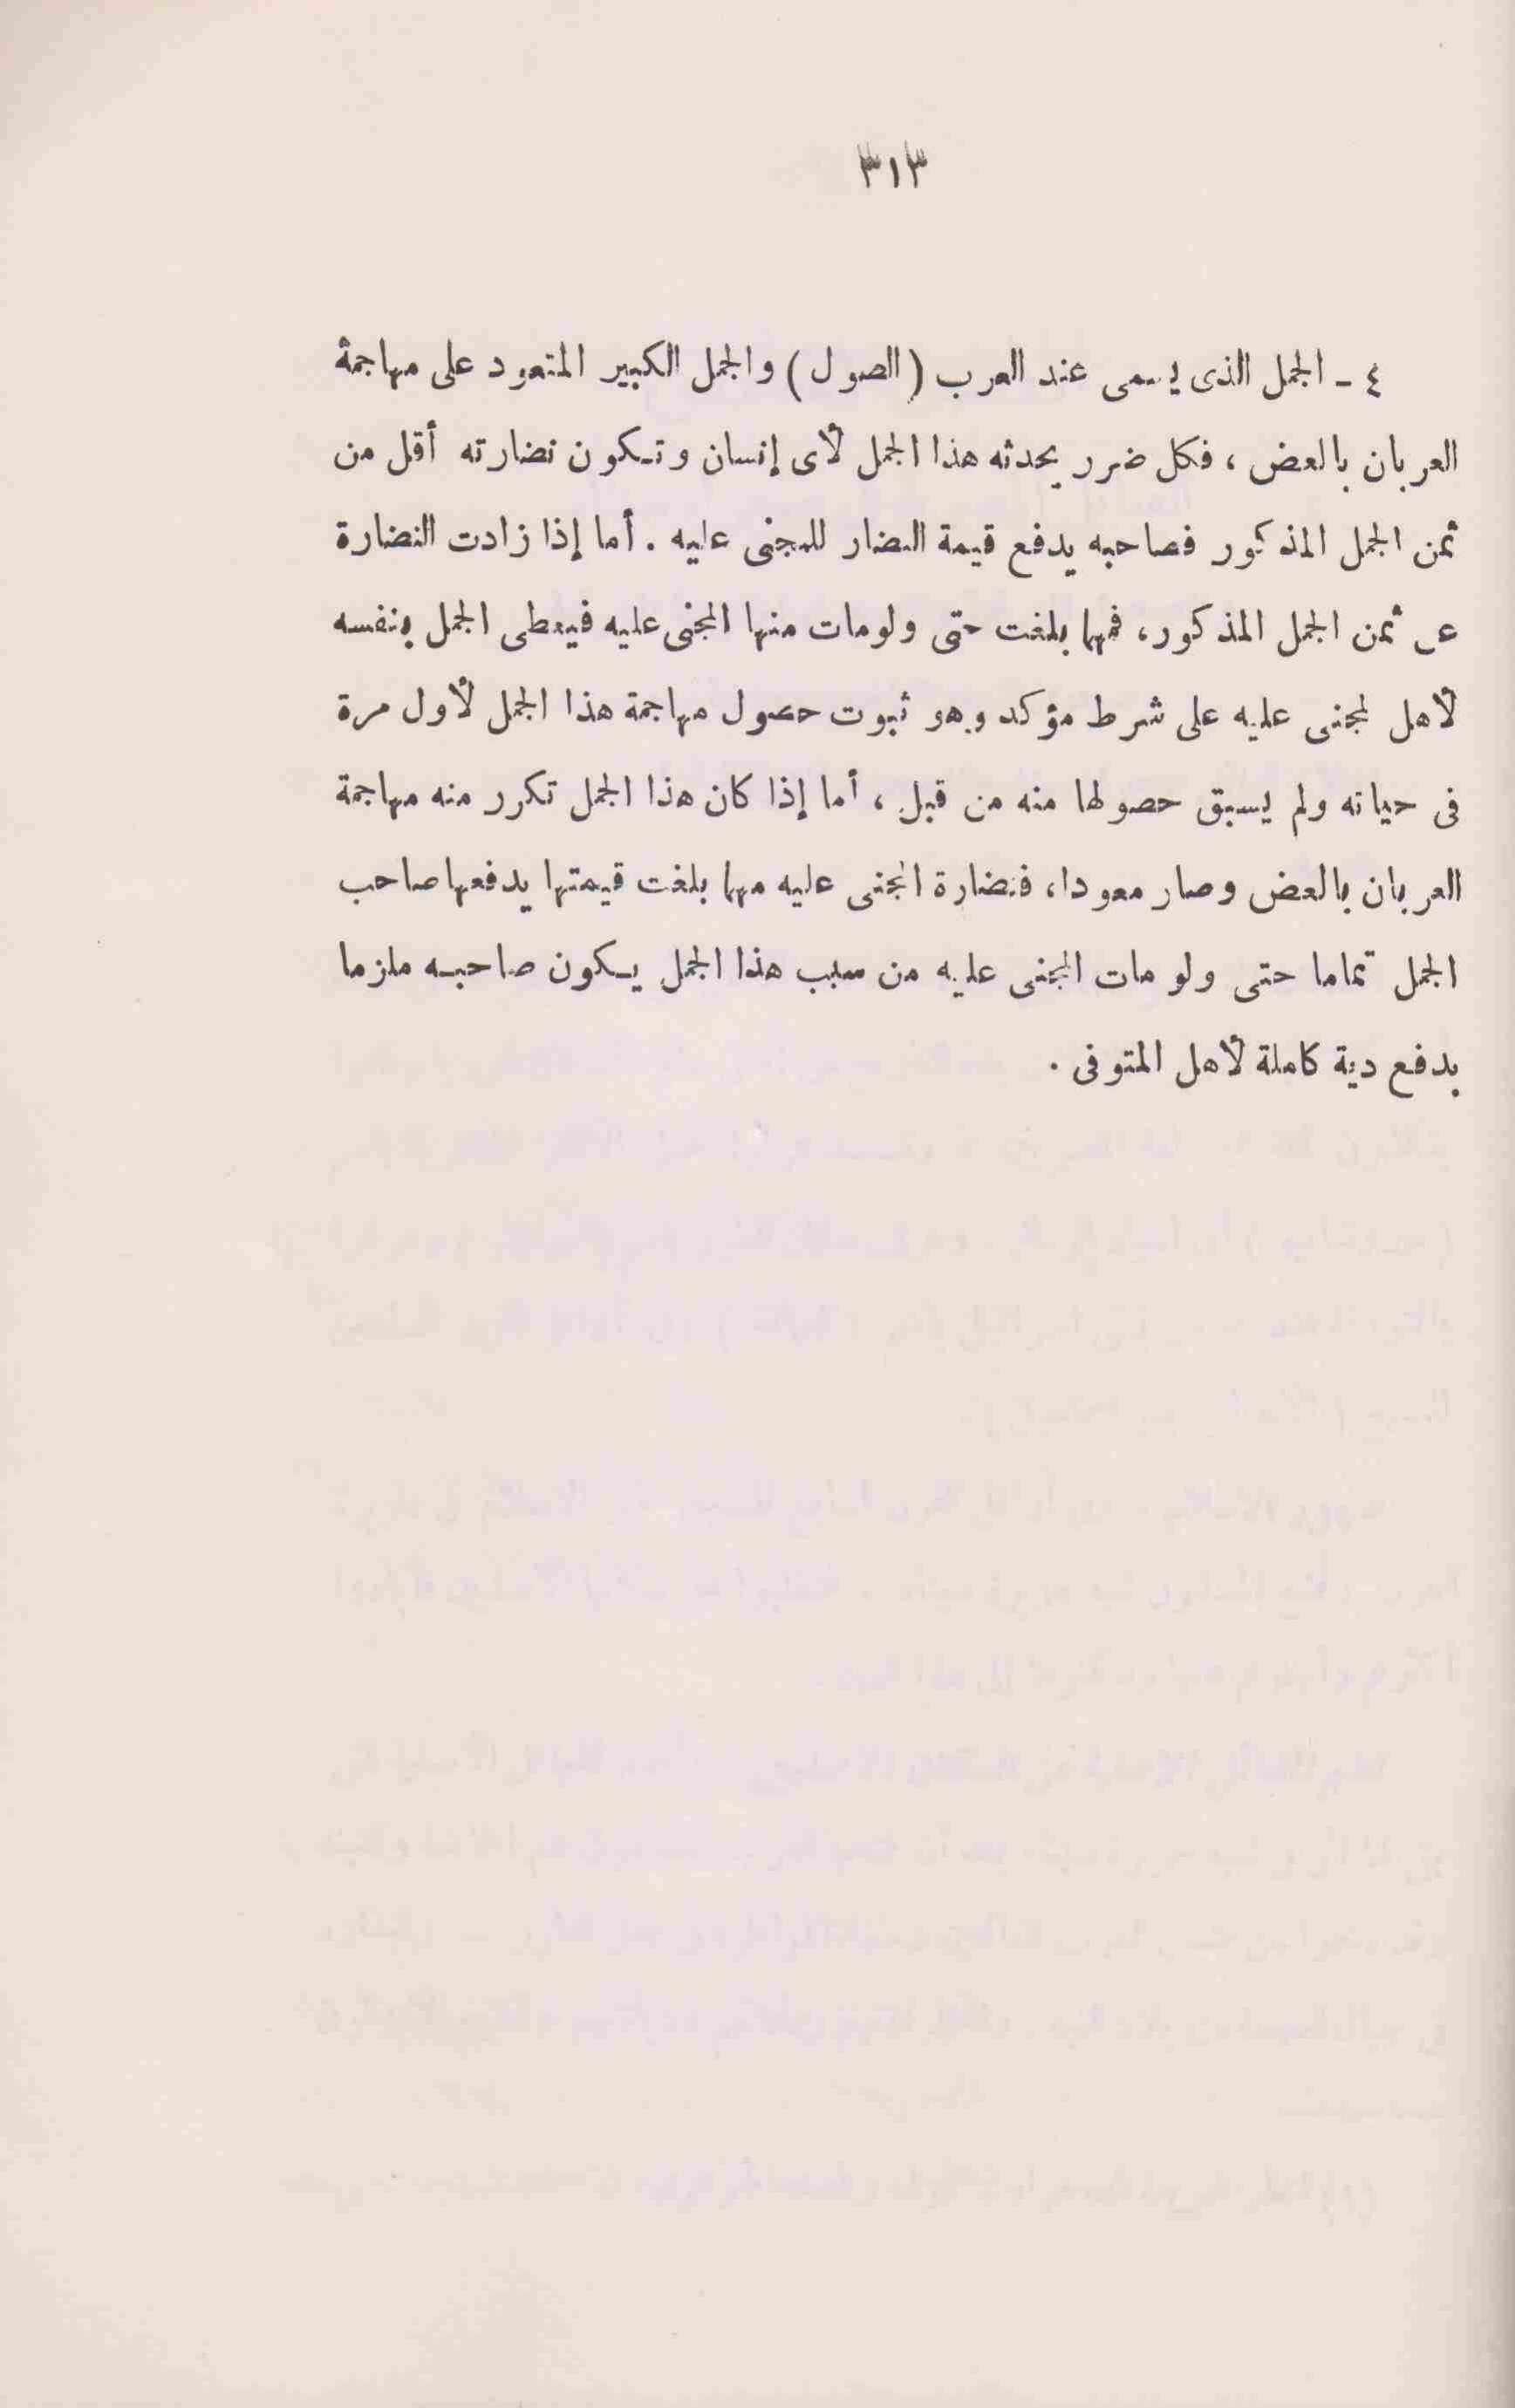 ٣١٣
٤ ـ الجمل الذى يسمى عند العرب (الصول) والجمل الكبير المتعود على مهاجمة
العربان بالعض، فكل ضرر يحدثه هذا الجمل لأى إنسان وتكون نضارته أقل من
ثمن الجمل المذكور فصاحبه يدفع قيمة النضار للمجنى عليه. أما إذا زادت النضارة
عن ثمن الجمل المذكور، فمهما بلغت حتى ولو مات منها المجنى عليه فيعطى الجمل بنفسه
لأهل المجنى عليه على شرط مؤكد وهو ثبوت حصول مهاجمة هذا الجمل لأول مرة
فى حياته ولم يسبق حصولها منه من قبل، أما إذا كان هذا الجمل تكرر منه مهاجمة
العربان بالعض وصار معودا، فنضارة المجنى عليه مهما بلغت قيمتها يدفعها صاحب
الجمل تماما حتى ولو مات المجنى عليه من سبب هذا الجمل يكون صاحبه ملزما
بدفع دية كاملة لأهل المتوفى.